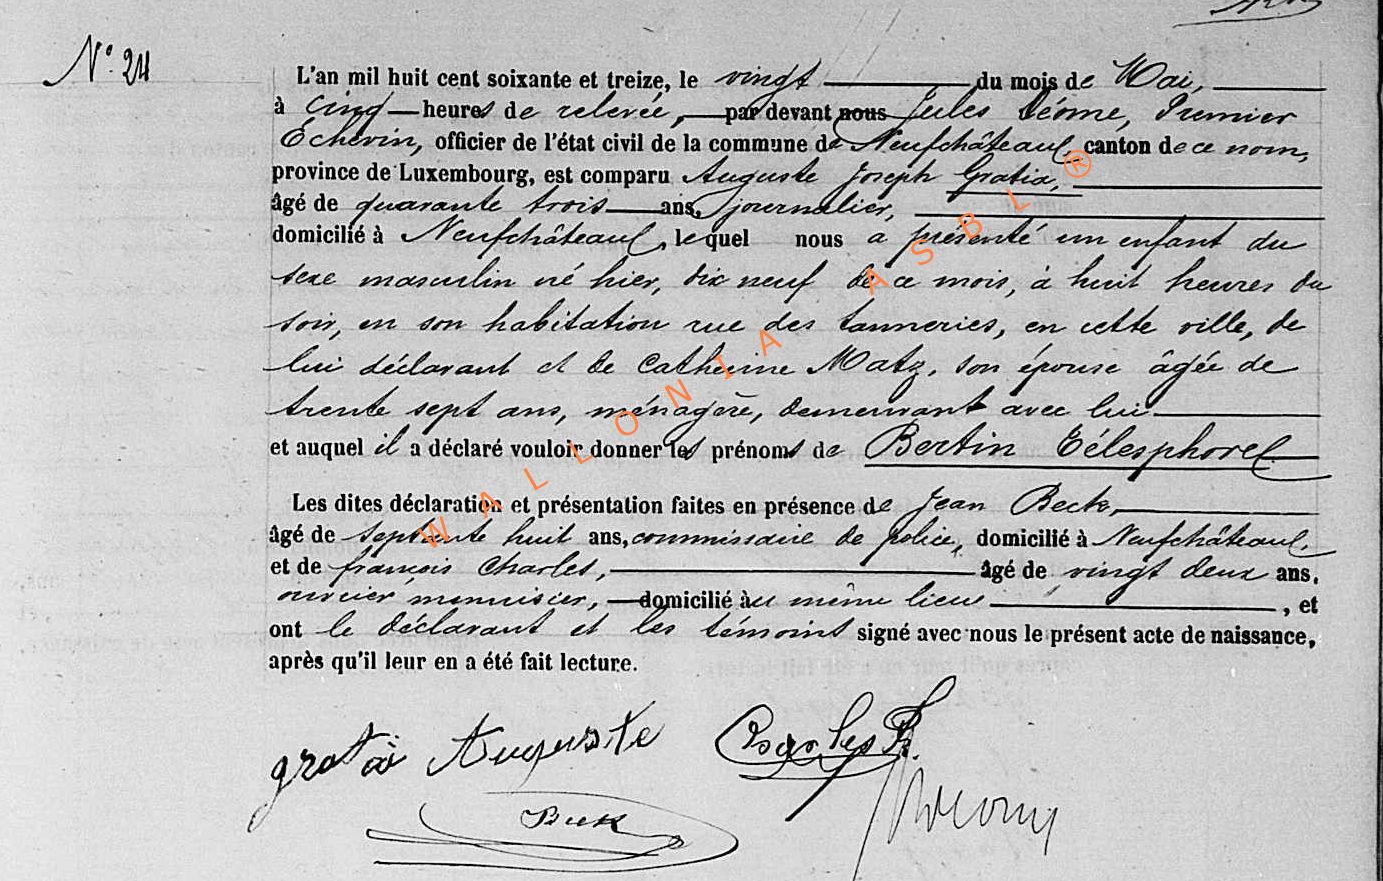 N° 24
L'an mil huit cent soixante et treize, le vingt du mois de Mai,
à cinq heures de relevée, par devant nous Jules Léome, Premier
Echevin, officier de l'état civil de la commune de Neufchâteau, canton de ce nom,
province de Luxembourg, est comparu Auguste Joseph Gratia,
âgé de quarante trois ans, journalier,
domicilié à Neufchâteau, lequel nous a présenté un enfant du
sexe masculin né hier, dix neuf de ce mois, à huit heures du
soir, en son habitation rue des tanneries, en cette ville, de
lui déclarant et de Catherine Matz, son épouse âgée de
trente sept ans, ménagère, demeurant avec lui
et auquel il a déclaré vouloir donner les prénoms de Bertin Télesphore
Les dites déclaration et présentation faites en présence de Jean Beck,
âgé de septente huit ans, commissaire de police, domicilié à Neufchâteau,
et de françois Charles, âgé de vingt deux ans,
ouvrier menuisier, domicilié au même lieu, et
ont le déclarant et les témoins signé avec nous le présent acte de naissance,
après qu'il leur en a été fait lecture.
gratia Auguste Charles F.
Beck
WALLONIA ASBL ®